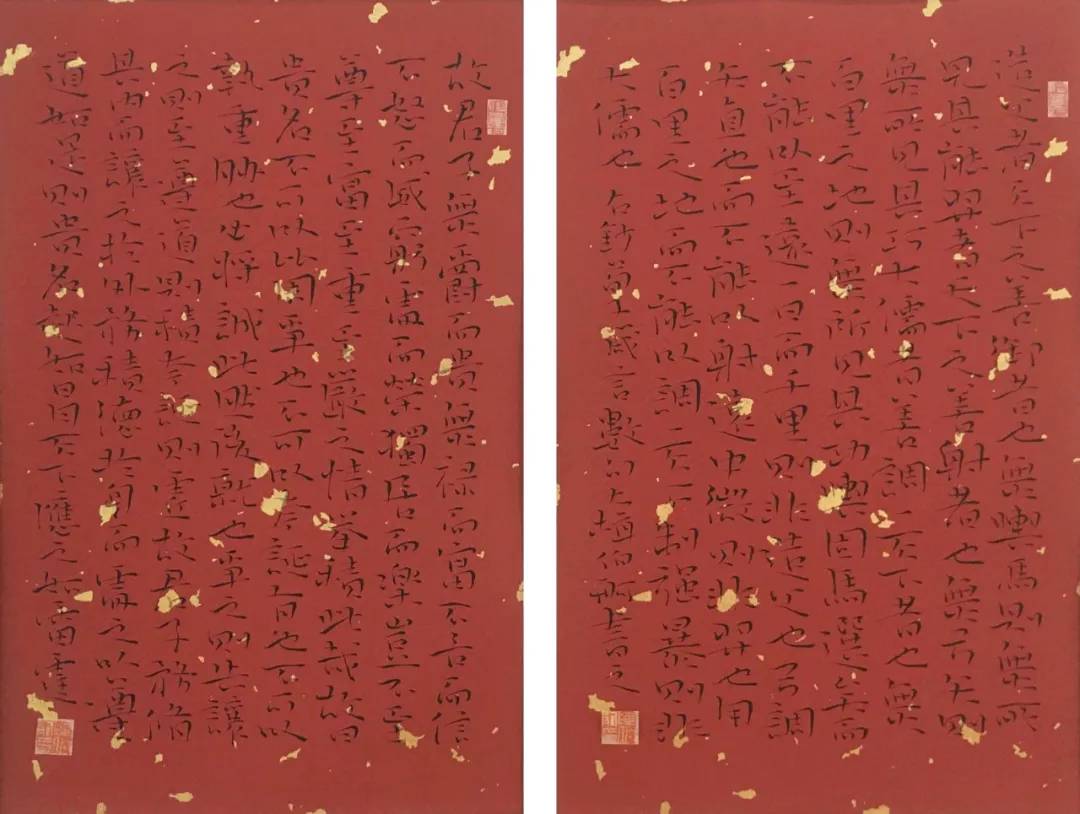 造父者天下之善御者也無輿馬則無所
見其能羿者天下之善射者也無弓矢則
無所見其巧大儒者善調一天下者也無
百里之地則無所見其功輿固馬選矣而
不能以至遠一日而千里則非造父也弓調
矢直也而不能以射遠中微則非羿也用
百里之地而不能以調一天下制强暴則非
大儒也 右鈔荀子箴言數句 伯 書之
故君子無爵而貴無祿而富不言而信
不怒而威窮處而榮獨居而樂豈不至
尊至富至重至嚴之情举積此哉故曰
貴名不可以比周爭也不可以夸誕有也不可以
執重脅也必將誠此然後就也爭之則失讓
之則至遵道則積夸誕則虛故君子務脩
其內而讓之於外務積德於身而處之以遵
道如是則貴名起如日月天下應之如雷霆